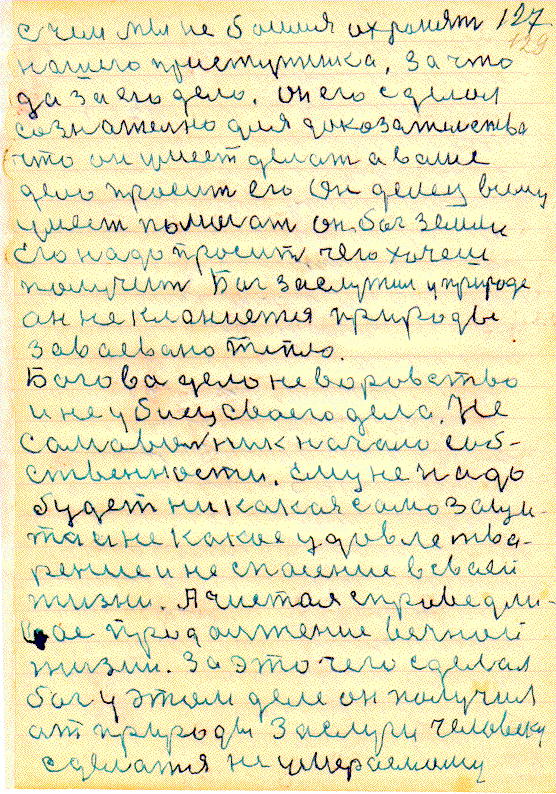 с чем мы не боимся охронят 127
нашего приступника. За что
да за его дело. Он его сделал
сознателно для доказателства
что он умеет делат а ваше
дело просит его Он делец всему
умеет помогат он бог земли
Его надо просит чего хочеш
получит Бог заслужил у природе
он не кланиется природы
завоевано тепло.
Богова дело не воровство
и не убиец своего дела. Не
начало соб-
ственности. Ему не надо
будет ни какая самозащи-
та и не какое удовлетва-
рение и не спасение в своей
жизни. А чистая справедли-
вае продолжение вечной
жизни. За это чего сделал
бог у этом деле он получил
от природы заслуги человеку
сделатя не умераемому